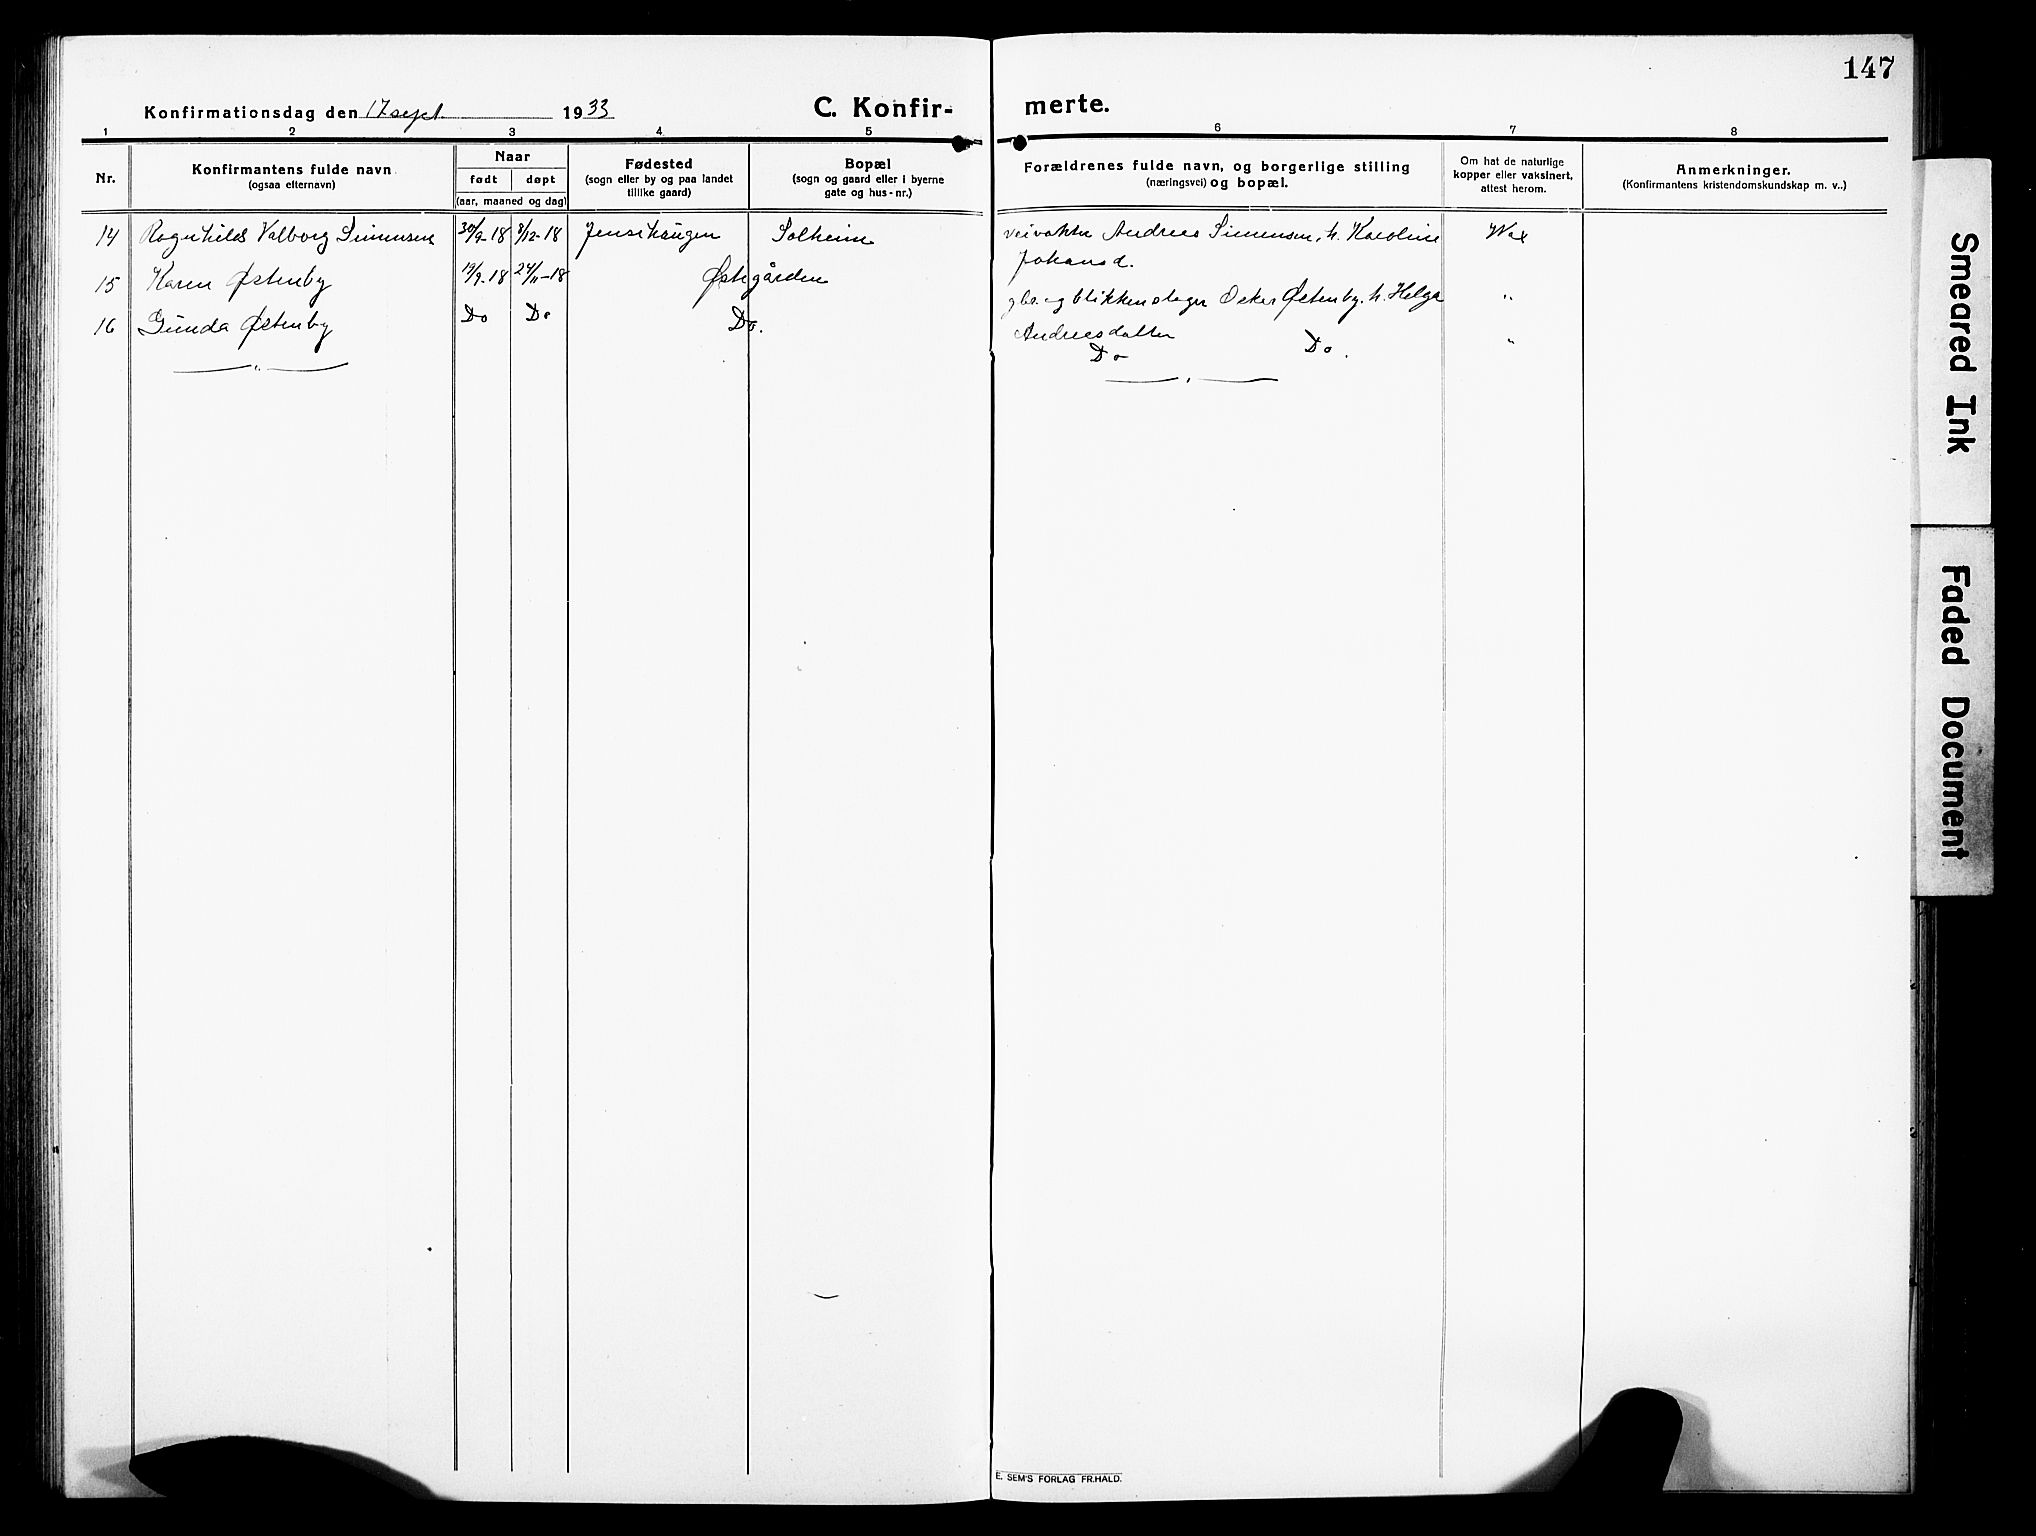 147
Konfirmationsdag den 17 sept. 1933
C. Konfir- merte.
1 2 3 4 5 6 7 8
Nr.
Konfirmantens fulde navn
(ogsaa elternavn)
Naar
født døpt
(aar, maaned og dag)
Fødested
(sogn eller by og paa landet
tillike gaard)
Bopæl
(sogn og gaard eller i byerne
gate og hus-nr.)
Forældrenes fulde navn, og borgerlige stilling
(næringsvei) og bopæl.
Om hat de naturlige
kopper eller vaksinert,
attest herom.
Anmerkninger.
(Konfirmantens kristendomskundskap m. v..)
14 Ragnhild Valborg Simensen 30/9-18 8/12-18 Jensihaugen Solheim veivokter Andreas Simensen, h. Karoline Vax
Johansd.
15 Karen Østenby 19/9-18 24/11-18 Østgården gbr. og blikkenslager Oskar Østenby, h. Helga "
Andreasdatter
16 Gunda Østenby Do Do Do. Do Do. "
Smeared Ink
Faded Document
E. SEM'S FORLAG FR.HALD.